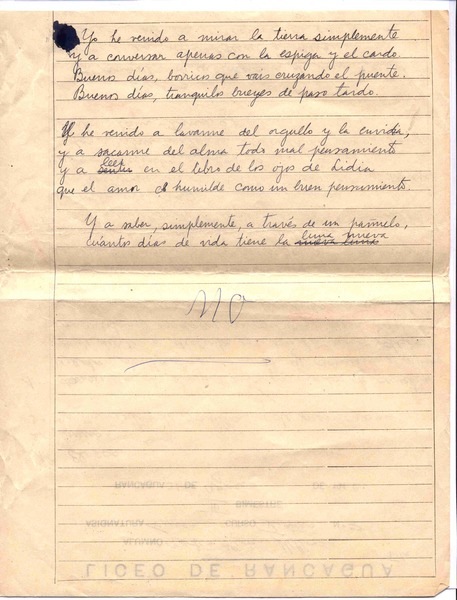 Yo he venido a mirar la tierra simplemente
y a conversar apenas con la espiga y el cardo
Buenos días, borricos que vais cruzando el puente.
Buenos días, tranquilos bueyes de paso tardo.
Yo he venido a lavarme del orgullo y la envidia,
y a sacarme del alma todo mal pensamiento
y a leer en el libro de los ojos de Lidia
que el amor es humilde como un buen pensamiento.
Y a saber, simplemente, a través de un pañuelo,
cuántos días de vida tiene la luna nueva
no
RANCAGUA DE DE
BIMESTRE
ASIGNATURA CURSO
ALUMNO
LICEO DE RANCAGUA